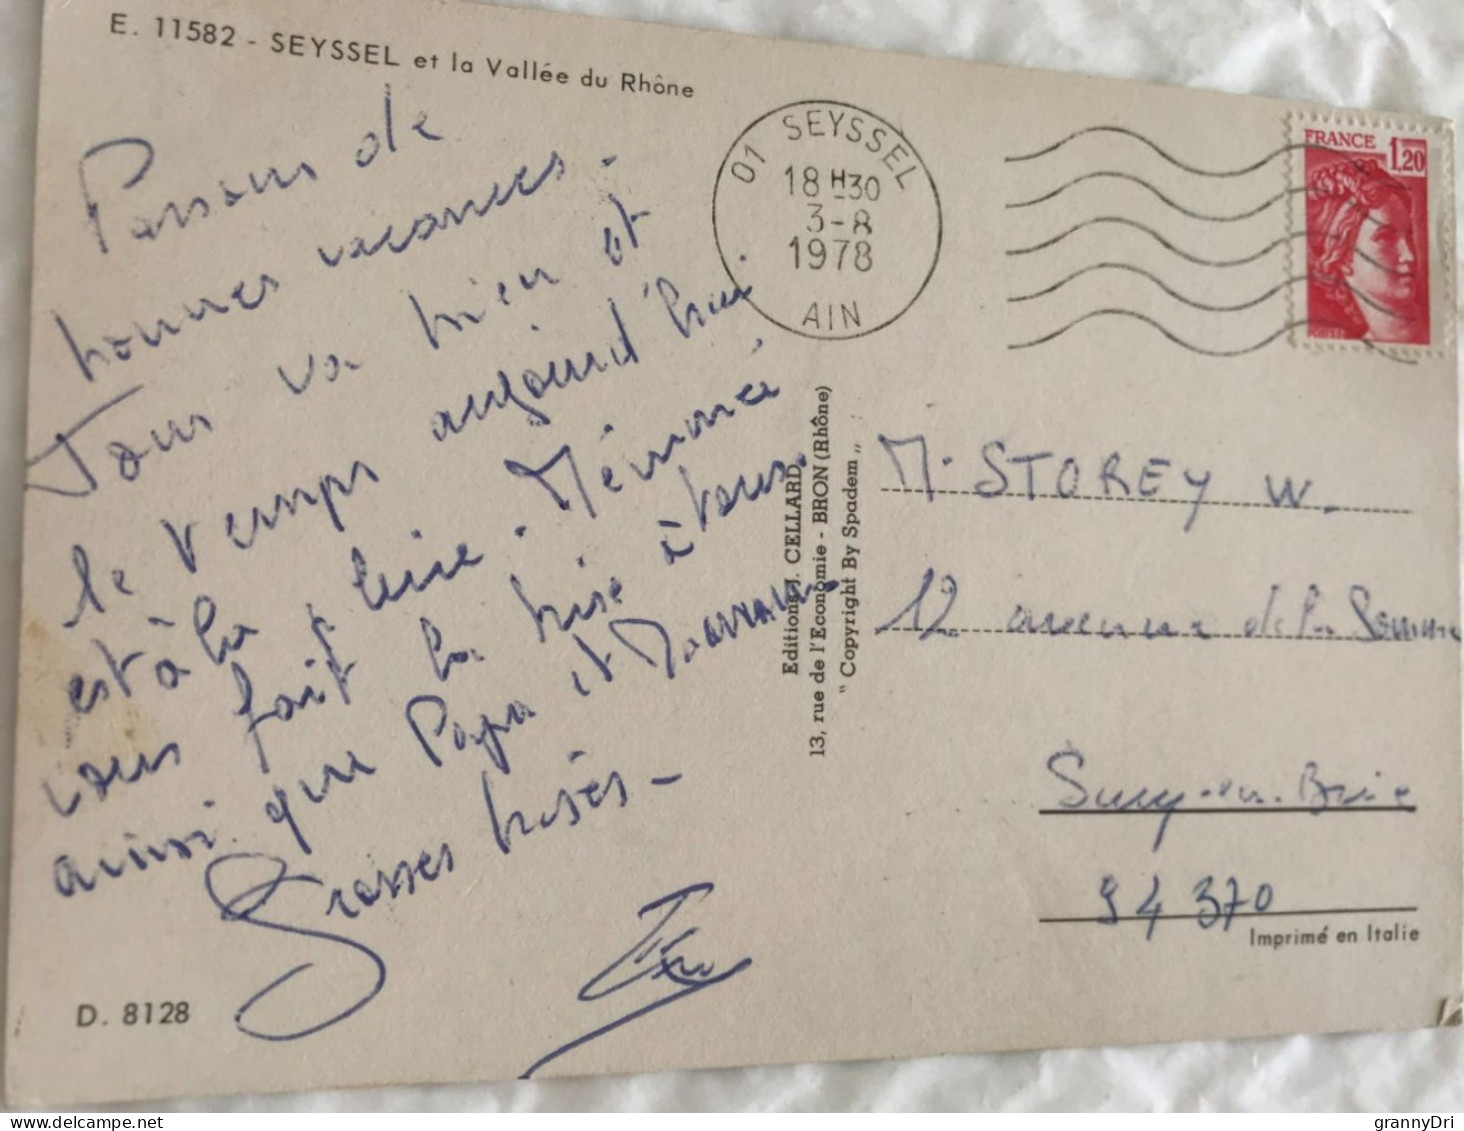 E. 11582 - SEYSSEL et la Vallée du Rhône
Passons de
bonnes vacances.
Tous va bien et
le temps aujourd'hui
est à la pluie. Mémoné
vous fait la bise à tous
ainsi que Papa et Maman.
Grosses bises -
D. 8128
01 SEYSSEL
18H30
3-8
1978
AIN
FRANCE 1,20
Editions J. CELLARD
13, rue de l'Economie - BRON (Rhône)
" Copyright By Spadem „
Mr STOREY W.
12 avenue de la Somme
Sucy-en-Brie
94 370
Imprimé en Italie
grannyDri